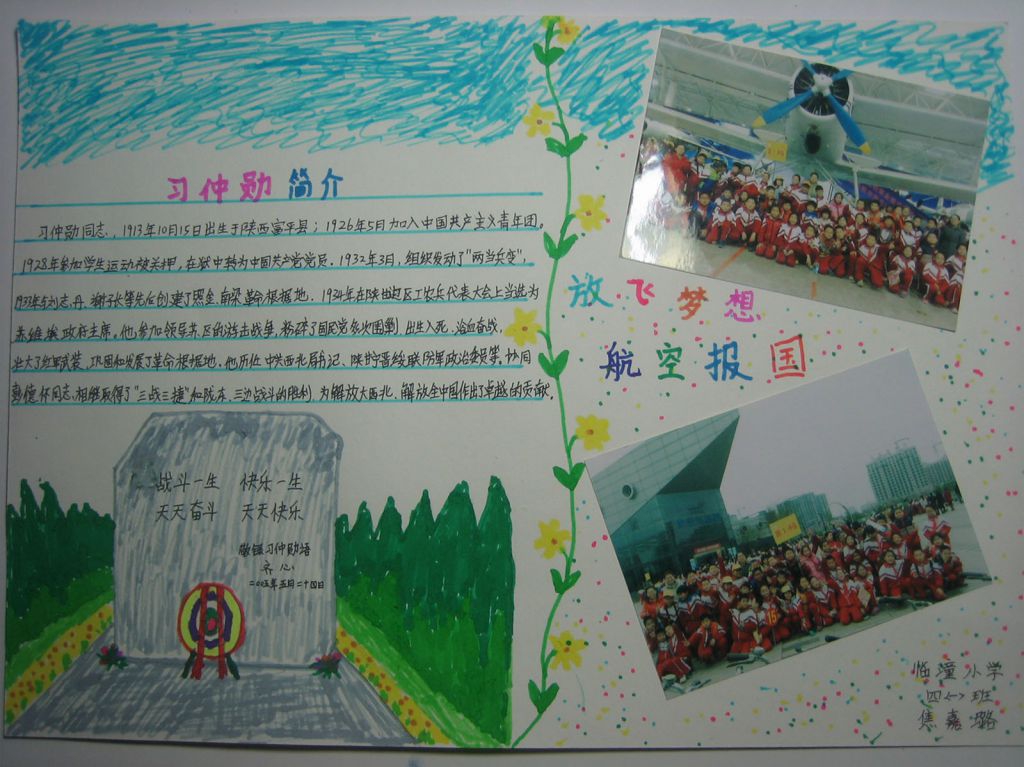 习仲勋简介
习仲勋同志，1913年10月15日出生于陕西富平县；1926年5月加入中国共产主义青年团。
1928年参加学生运动被关押，在狱中转为中国共产党党员。1932年3月，组织发动了"两当兵变"，
1933年与刘志丹、谢子长等先后创建了照金、南梁革命根据地。1934年在陕甘边区工农兵代表大会上当选为
苏维埃政府主席，他参加领导苏区的游击战争，粉碎了国民党多次围剿，出生入死，浴血奋战，
壮大了红军武装，巩固和发展了革命根据地。他历任中共西北局书记、陕甘宁晋绥联防军政治委员等，协同
彭德怀同志，相继取得了"三战三捷"和陇东、三边战斗的胜利，为解放大西北、解放全中国作出了卓越的贡献。
战斗一生 快乐一生
天天奋斗 天天快乐
敬录习仲勋语
齐心
二〇〇五年五月二十四日
放飞梦想
航空报国
临潼小学
四<一>班
焦嘉璐